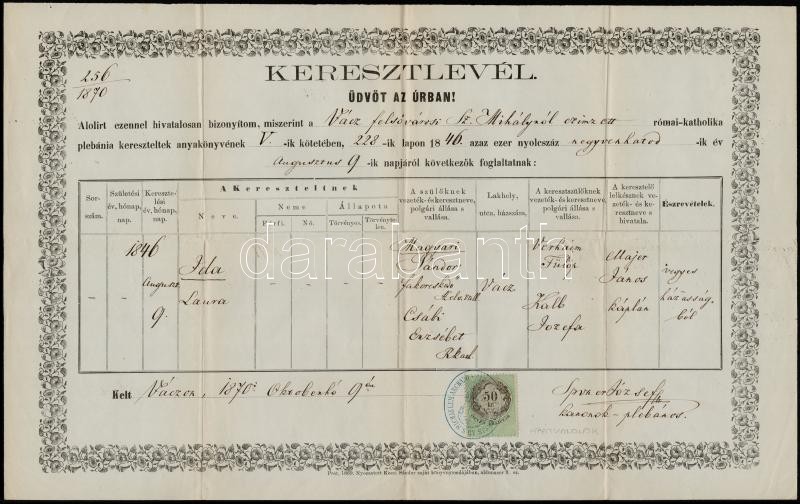 256
1870
KERESZTLEVÉL.
ÜDVÖT AZ ÚRBAN!
Alolirt ezennel hivatalosan bizonyítom, miszerint a Vácz felsővárosi Sz. Mihályról czimzett római-katholika
plebánia kereszteltek anyakönyvének V. -ik kötetében, 228 -ik lapon 1846. azaz ezer nyolcszáz negyvenhatod -ik év
Augusztus 9 -ik napjáról következők foglaltatnak:
Sorszám.
Születési év, hónap, nap.
Keresztelési év, hónap, nap.
A Kereszteltnek
Neve.
Neme
Férfi.
Nő.
Állapota
Törvényes.
Törvénytelen.
A szülőknek vezeték- és keresztneve, polgári állása s vallása.
Lakhely, utca, házszám.
A keresztszülőknek vezeték- és keresztneve, polgári állása s vallása.
A keresztelő lelkésznek vezeték- és keresztneve s hivatala.
Észrevételek.
1846
August
9.
Ida
Laura
Magyari
Sándor
fakereskedő
Helv. vall
Csábi
Erzsébet
R. kath
Vácz
Fülöp
Kalb
Jozefa
Major
János
káplán
vegyes
házasság-
ból
Kelt Váczon, 1870. Oktoberhó 9én
50
József
kanonok-plébános.
darabanth